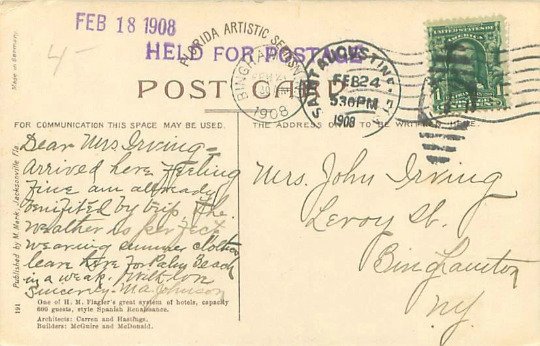 FEB 18 1908
HELD FOR POSTAGE
FLORIDA ARTISTIC SERIES
BINGHAMTON
1908
SAINT AUGUSTINE, FLA.
FEB 24
530 PM
1908
UNITED STATES OF AMERICA
1
4-
POST CARD
Made in Germany.
FOR COMMUNICATION THIS SPACE MAY BE USED.
THE ADDRESS ONLY TO BE WRITTEN HERE.
Dear Mrs Irving=
Arrived here feeling
fine am already
benifited by trip, The
weather is perfect
wearing summer clothes
leave here for Palm Beach
in a week. With love
Sincerely. M.A. Johnson
Mrs. John Irving
Leroy St.
Binghamton
NY.
One of H. M. Flagler's great system of hotels, capacity
600 guests, style Spanish Renaissance.
Architects: Carren and Hastings.
Builders: McGuire and McDonald.
191 Published by M. Mark, Jacksonville Fla.